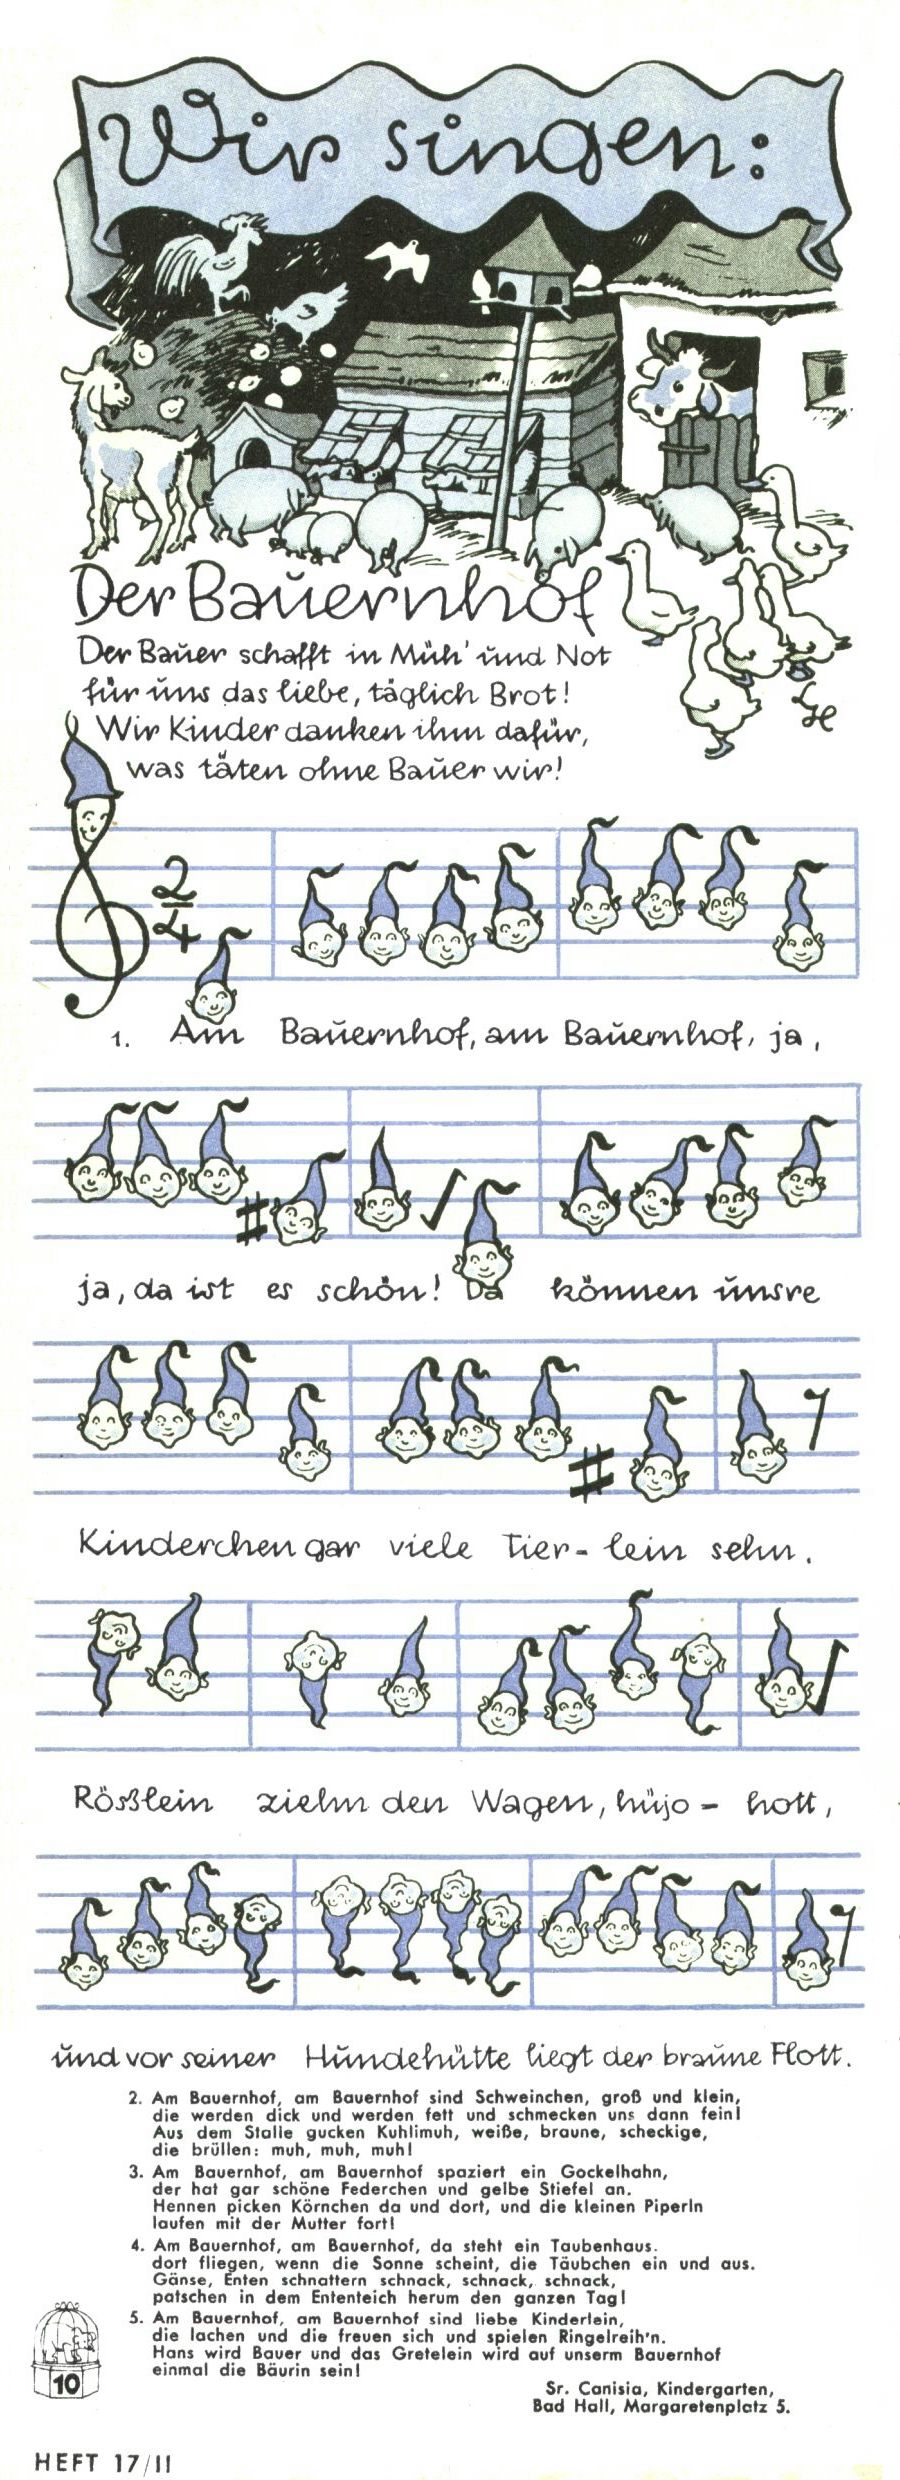 Wir singen:
Der Bauernhof
Der Bauer schafft in Müh' und Not
für uns das liebe, täglich Brot!
Wir Kinder danken ihm dafür,
was täten ohne Bauer wir!
2
4
1. Am Bauernhof, am Bauernhof, ja,
ja, da ist es schön! Da können unsre
Kinderchen gar viele Tier-lein sehn.
Rößlein ziehn den Wagen, hüjo- hott,
und vor seiner Hundehütte liegt der braune Flott.
2. Am Bauernhof, am Bauernhof sind Schweinchen, groß und klein,
die werden dick und werden fett und schmecken uns dann fein!
Aus dem Stalle gucken Kuhlimuh, weiße, braune, scheckige,
die brüllen: muh, muh, muh!
3. Am Bauernhof, am Bauernhof spaziert ein Gockelhahn,
der hat gar schöne Federchen und gelbe Stiefel an.
Hennen picken Körnchen da und dort, und die kleinen Piperln
laufen mit der Mutter fort!
4. Am Bauernhof, am Bauernhof, da steht ein Taubenhaus.
dort fliegen, wenn die Sonne scheint, die Täubchen ein und aus.
Gänse, Enten schnattern schnack, schnack, schnack,
patschen in dem Ententeich herum den ganzen Tag!
5. Am Bauernhof, am Bauernhof sind liebe Kinderlein,
die lachen und die freuen sich und spielen Ringelreih'n.
Hans wird Bauer und das Gretelein wird auf unserm Bauernhof
einmal die Bäurin sein!
Sr. Canisia, Kindergarten,
Bad Hall, Margaretenplatz 5.
10
HEFT 17/II